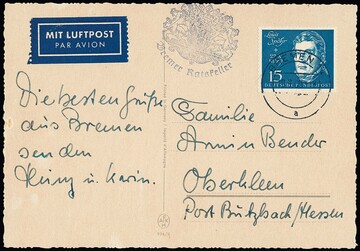 MIT LUFTPOST
PAR AVION
Bremer Ratskeller
Louis Spohr
BREMEN
15
DEUTSCHE BUNDESPOST
a
Die besten Grüße
aus Bremen
senden
Heinz u. Karin.
Familie
Armin Bender
Oberkleen
Post Butzbach/Hessen